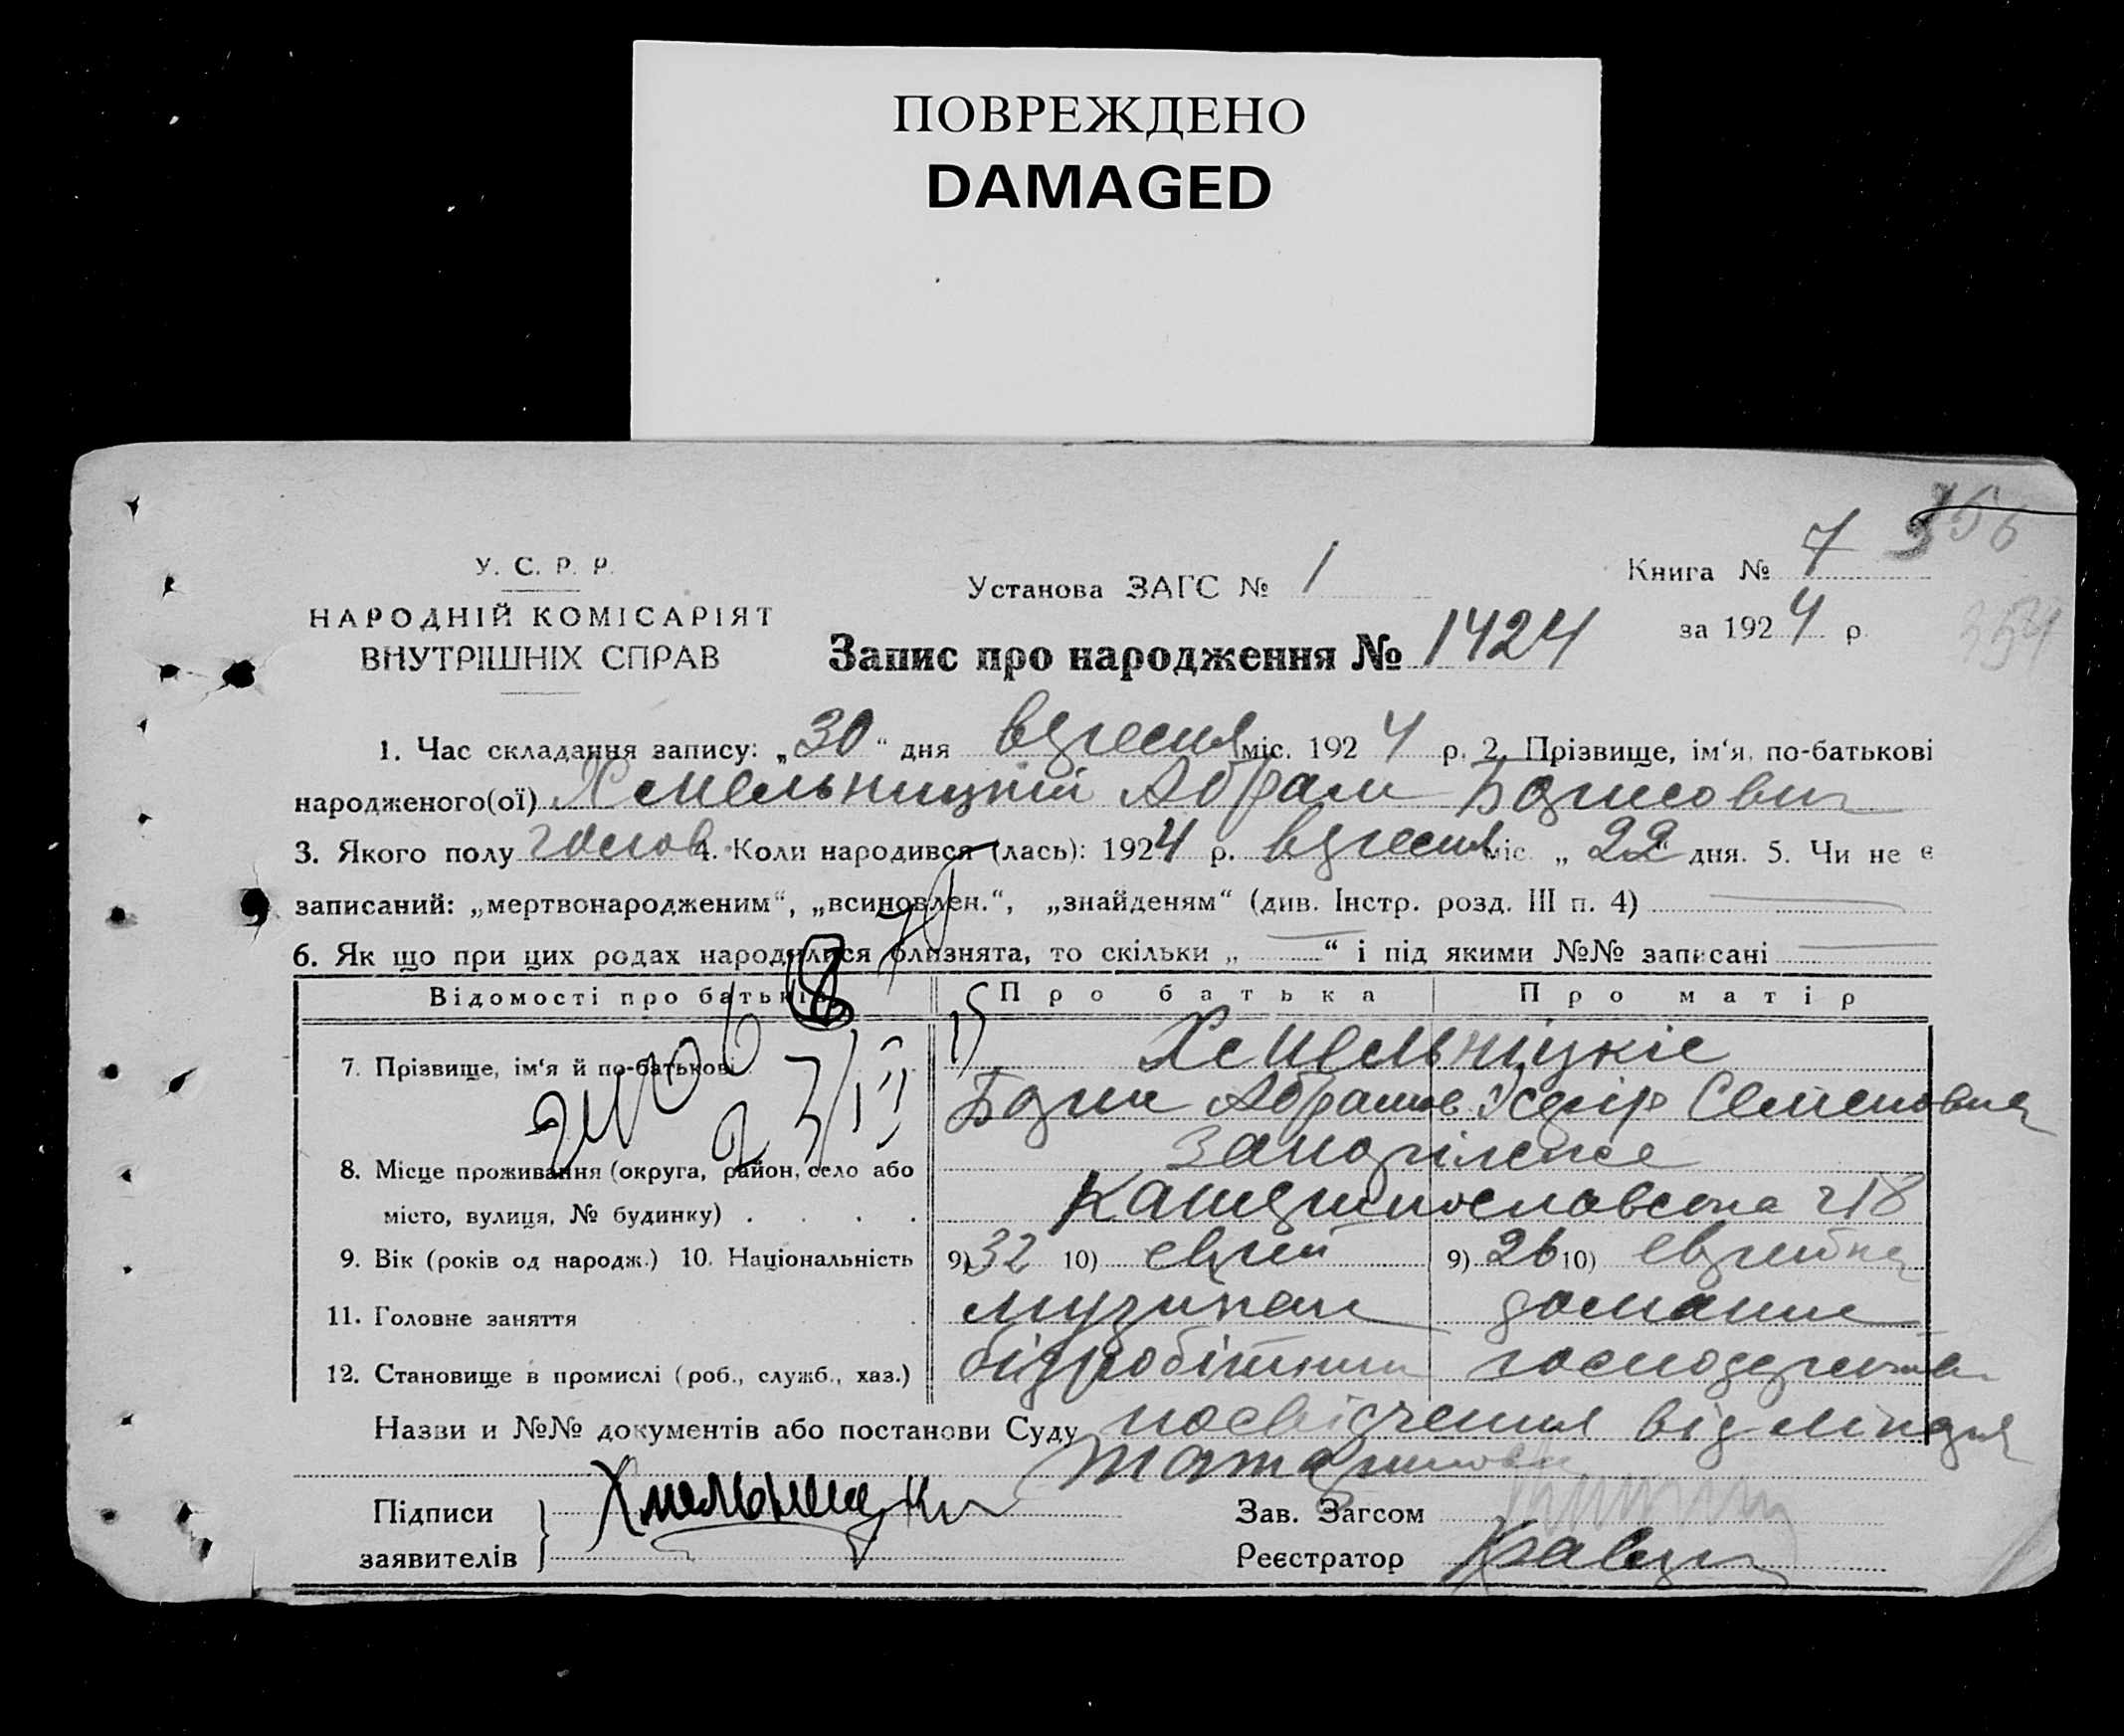 ПОВРЕЖДЕНО
DAMAGED
356
У. С. Р. Р.
НАРОДНІЙ КОМІСАРІЯТ
ВНУТРІШНІХ СПРАВ
Установа ЗАГС № 1
Книга № 7
за 1924 р.
354
Запис про народження № 1424
1. Час складання запису: „30“ дня вересня міс. 1924 р. 2. Прізвище, ім‘я, по-батькові
народженого(ої) Хемельницкій Абрам Борисович
3. Якого полу чолов. 4. Коли народився (лась): 1924 р. вересня міс. „22“ дня. 5. Чи не є
записаний: „мертвонародженим“, „всиновлен.“, „знайденям“ (див. Інстр. розд. III п. 4)
6. Як що при цих родах народилися близнята, то скільки „ “ і під якими №№ записані
Відомості про батьків Про батька Про матір
7. Прізвище, ім‘я й по-батькові Хемельніцкіе
Борис Абрамов. Семеновна
8. Місце проживання (округа, район, село або
місто, вулиця, № будинку) Катеринославська 218
9. Вік (років од народж.) 10. Національність 9) 32 10) еврей 9) 26 10) еврейка
11. Головне заняття музикант домашнє
12. Становище в промислі (роб., служб., хаз.) робітник господарство
Назви и №№ документів або постанови Суду посвідчення від лікаря
Підписи
заявителів Хмельницкий
Зав. Загсом
Реєстратор Кравец